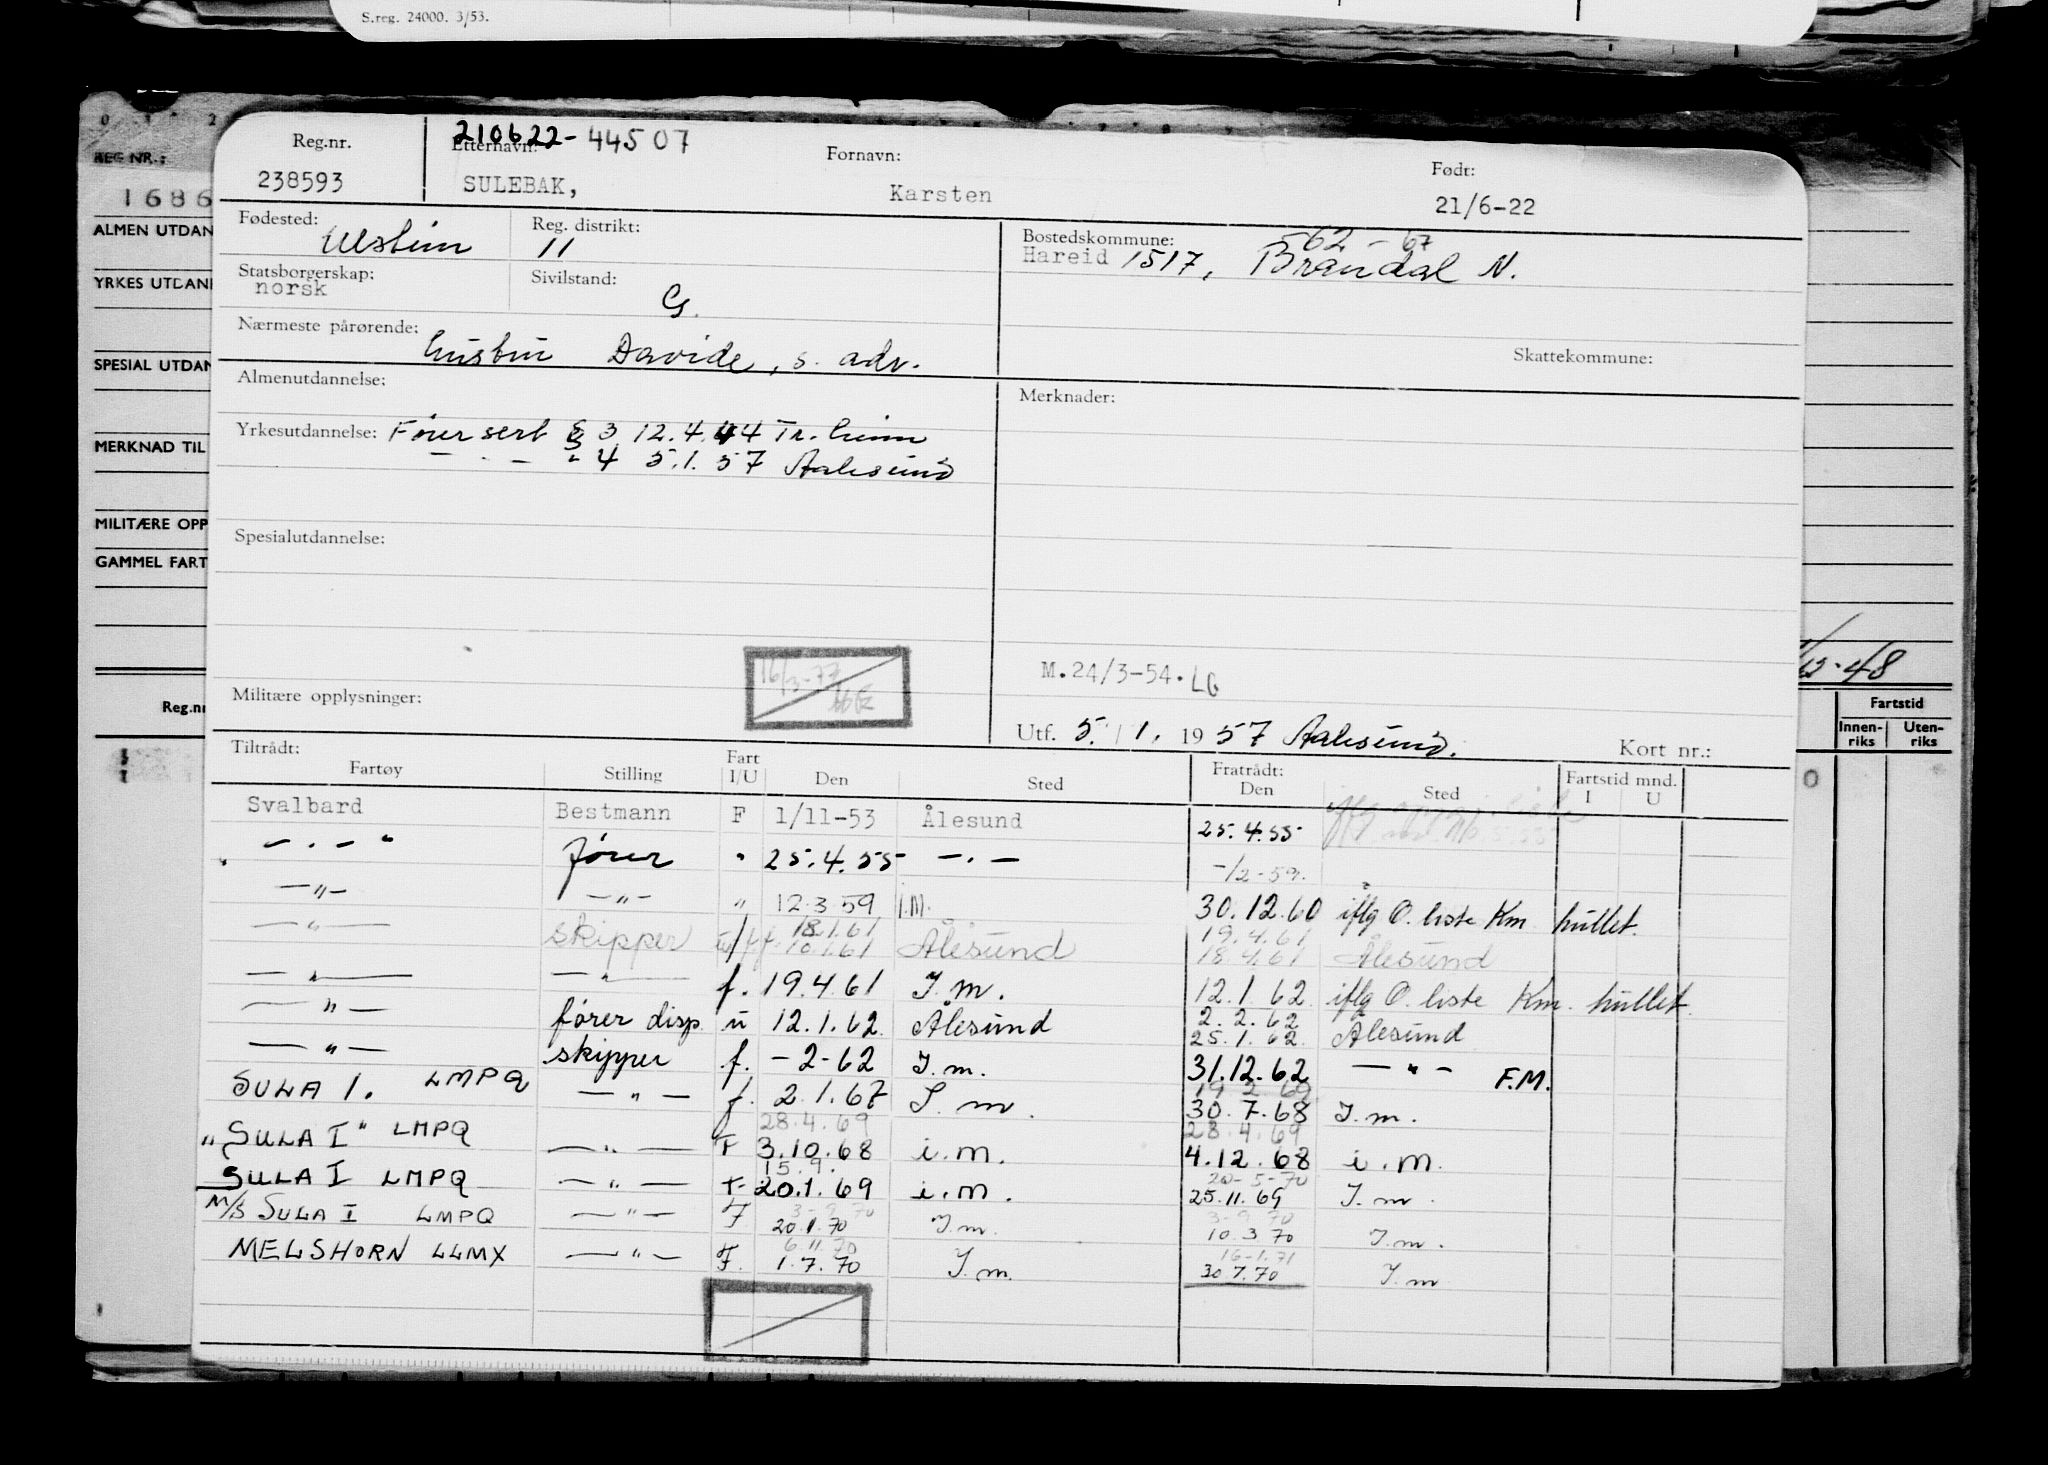 S.reg. 24000. 3/53.
210622-44507
Reg.nr.
Etternavn:
Fornavn:
Født:
238593
SULEBAK,
Karsten
21/6-22
REG NR.:
1686
ALMEN UTDAN
YRKES UTDANN
SPESIAL UTDAN
MERKNAD TIL
MILITÆRE OPP
GAMMEL FART
Reg.nr
Fødested: Ulstein
Reg. distrikt: 11
Bostedskommune: 62-67
Hareid 1517, Brandal N.
Statsborgerskap: norsk
Sivilstand: G.
Nærmeste pårørende: hustru Davide, s. adr.
Skattekommune:
Almenutdannelse:
Merknader:
Yrkesutdannelse: Fører sert § 3 12.4.44 Tr.heim
— . — " 4 5.1.57 Aalesund
Spesialutdannelse:
16/3-77
M.24/3-54. LG
Militære opplysninger:
Utf. 5. / 1. 1957 Aalesund.
Kort nr.:
12-48
Fartstid
Innen-riks
Uten-riks
0
Tiltrådt:
Fartøy
Stilling
Fart I/U
Den
Sted
Fratrådt: Den
Sted
Fartstid mnd.
I
U
Svalbard Bestmann F 1/11-53 Ålesund 25.4.55
— . — " fører " 25.4.55 — . — -/2-59.
— " — — " — " 12.3.59 I.M. 30.12.60 iflg O. liste Km hullet.
— " — skipper u/f 18.1.61 10.1.61 Ålesund 19.4.61 18.4.61 Ålesund
— " — — " — f. 19.4.61 I.m. 12.1.62 iflg O. liste Km. hullet
— " — fører disp. u 12.1.62 Ålesund 2.2.62 25.1.62 Ålesund
— " — skipper f. -2-62 I.m. 31.12.62 — " — F.M.
SULA I. LMPQ — " — f. 2.1.67 I.m. 19.2.69 30.7.68 I.m.
"SULA I" LMPQ — " — F 28.4.69 3.10.68 i.m. 28.4.69 4.12.68 i.m.
SULA I LMPQ — " — F 15.9. 20.1.69 i.m. 20-5-70 25.11.69 I.m.
M/S SULA I LMPQ — " — F 3-9 70 20.1.70 I.m. 3-9 70 10.3.70 I.m.
MELSHORN LLMX — " — F. 6.11.70 1.7.70 I.m. 16-1.71 30.7.70 I.m